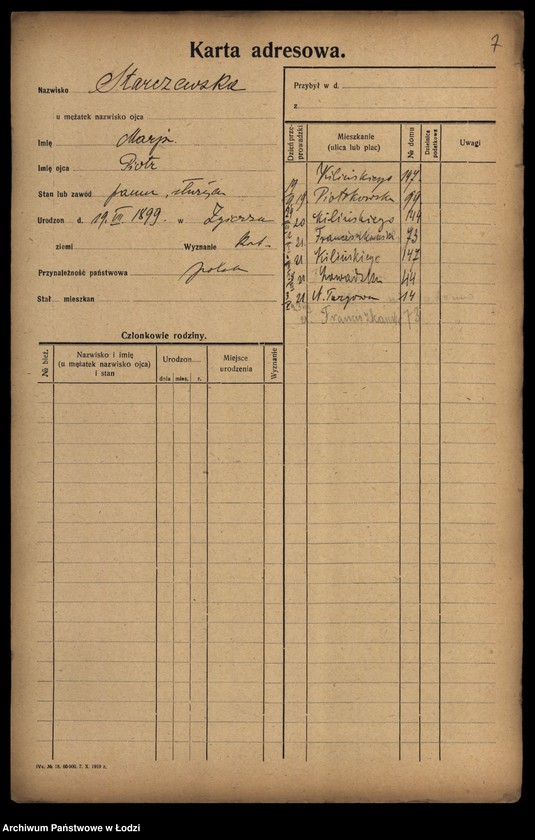 7
Karta adresowa.
Nazwisko Starczewska
u mężatek nazwisko ojca
Imię Marja
Imię ojca Piotr
Stan lub zawód panna, służąca
Urodzon d. 19.VI 1899 w Zgierzu
ziemi Wyznanie kat.
Przynależność państwowa polsk
Stał. mieszkan
Członkowie rodziny.
№ bież.
Nazwisko i imię
(u mężatek nazwisko ojca)
i stan
Urodzon
dnia mies. r.
Miejsce
urodzenia
Wyznanie
Przybył w d.
z
Dzień prze-
prowadzki
Mieszkanie
(ulica lub plac)
№ domu
Dzielnica
podatkowa
Uwagi
Kilińskiego 147
19 Piotrkowska 99
20 Kilińskiego 144
21 Franciszkańska 73
21 Kilińskiego 147
21 Zawadzka 44
21 N. Targowa 14
Franciszkańsk 73